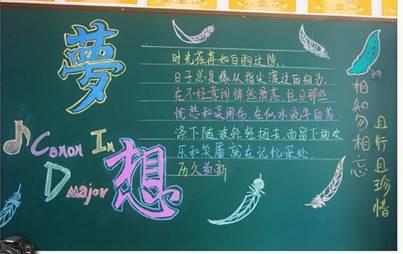 夢
想
Canon In
D major
时光荏苒如白驹过隙，
日子总是像从指尖渡过的细沙，
在不经意间悄然滑落。往日那些
忧愁和误用伤，在似水流年的荡
涤下随波轻轻逝去，而留下的欢
乐和笑靥就在记忆深处，
历久弥新
相知勿相忘
且行且珍惜